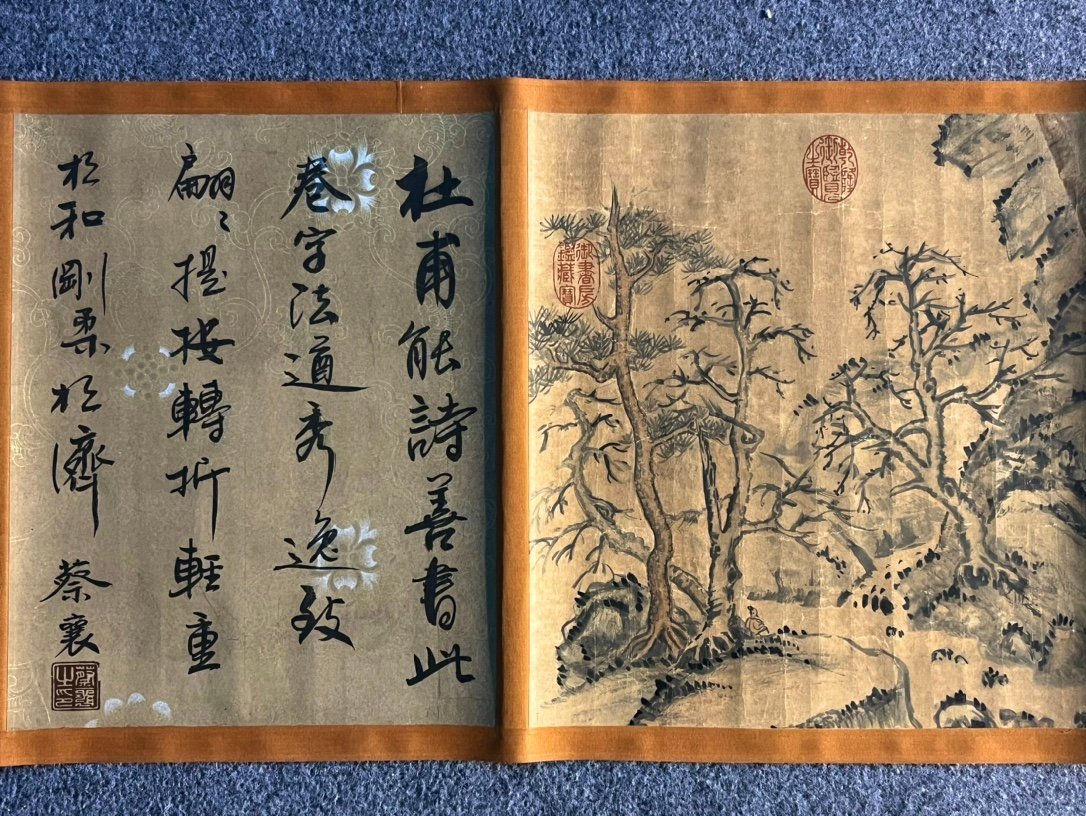 杜甫能詩善書此
卷字法遒秀逸致
翩〻提按轉折輕重
於和剛柔於濟
蔡襄
蔡襄之印
乾隆御覽之寶
御書房鑑藏寶